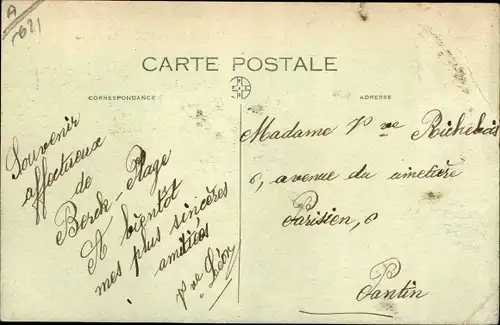 A
1621
CARTE POSTALE
CORRESPONDANCE
ADRESSE
Souvenir
affectueux
de
Berck-Plage
A bientôt
mes plus sincères
amitiés
Pre Léon
Madame Vve
6, avenue du cimetière
Parisien, 6
Pantin